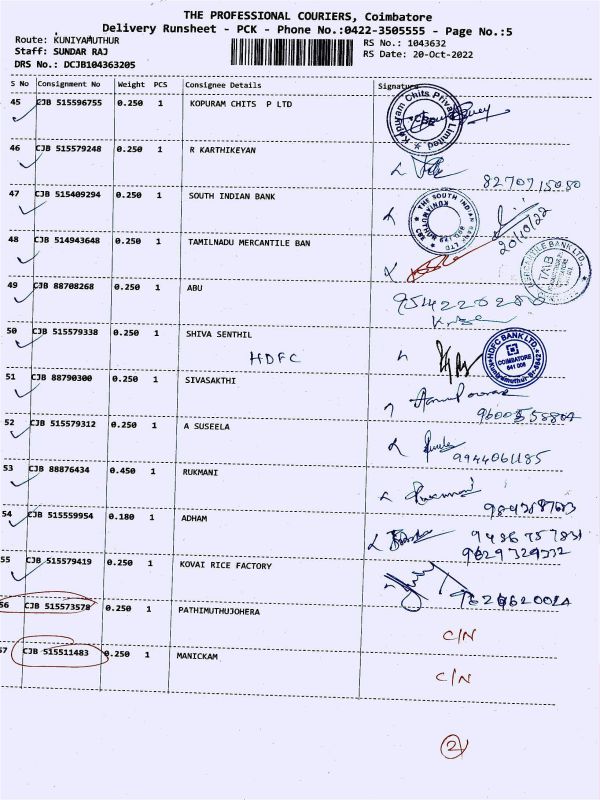 THE PROFESSIONAL COURIERS, Coimbatore
Delivery Runsheet - PCK - Phone No.:0422-3505555 - Page No.:5
Route: KUNIYAMUTHUR
RS No.: 1043632
Staff: SUNDAR RAJ
RS Date: 20-Oct-2022
DRS No.: DCJB104363205
S No Consignment No Weight PCS Consignee Details Signature
45 CJB 515596755 0.250 1 KOPURAM CHITS P LTD
Kopuram Chits Private Limited
46 CJB 515579248 0.250 1 R KARTHIKEYAN
47 CJB 515409294 0.250 1 SOUTH INDIAN BANK
THE SOUTH INDIAN BANK LTD
20/10/22
48 CJB 514943648 0.250 1 TAMILNADU MERCANTILE BAN
MERCANTILE BANK LTD.
TMB
49 CJB 88708268 0.250 1 ABU
9514220280
50 CJB 515579338 0.250 1 SHIVA SENTHIL
HDFC
HDFC BANK LTD.
COIMBATORE
641 008
51 CJB 88790300 0.250 1 SIVASAKTHI
52 CJB 515579312 0.250 1 A SUSEELA
9944061185
53 CJB 88876434 0.450 1 RUKMANI
54 CJB 515559954 0.180 1 ADHAM
55 CJB 515579419 0.250 1 KOVAI RICE FACTORY
56 CJB 515573578 0.250 1 PATHIMUTHUJOHERA
C/N
57 CJB 515511483 0.250 1 MANICKAM
C/N
2